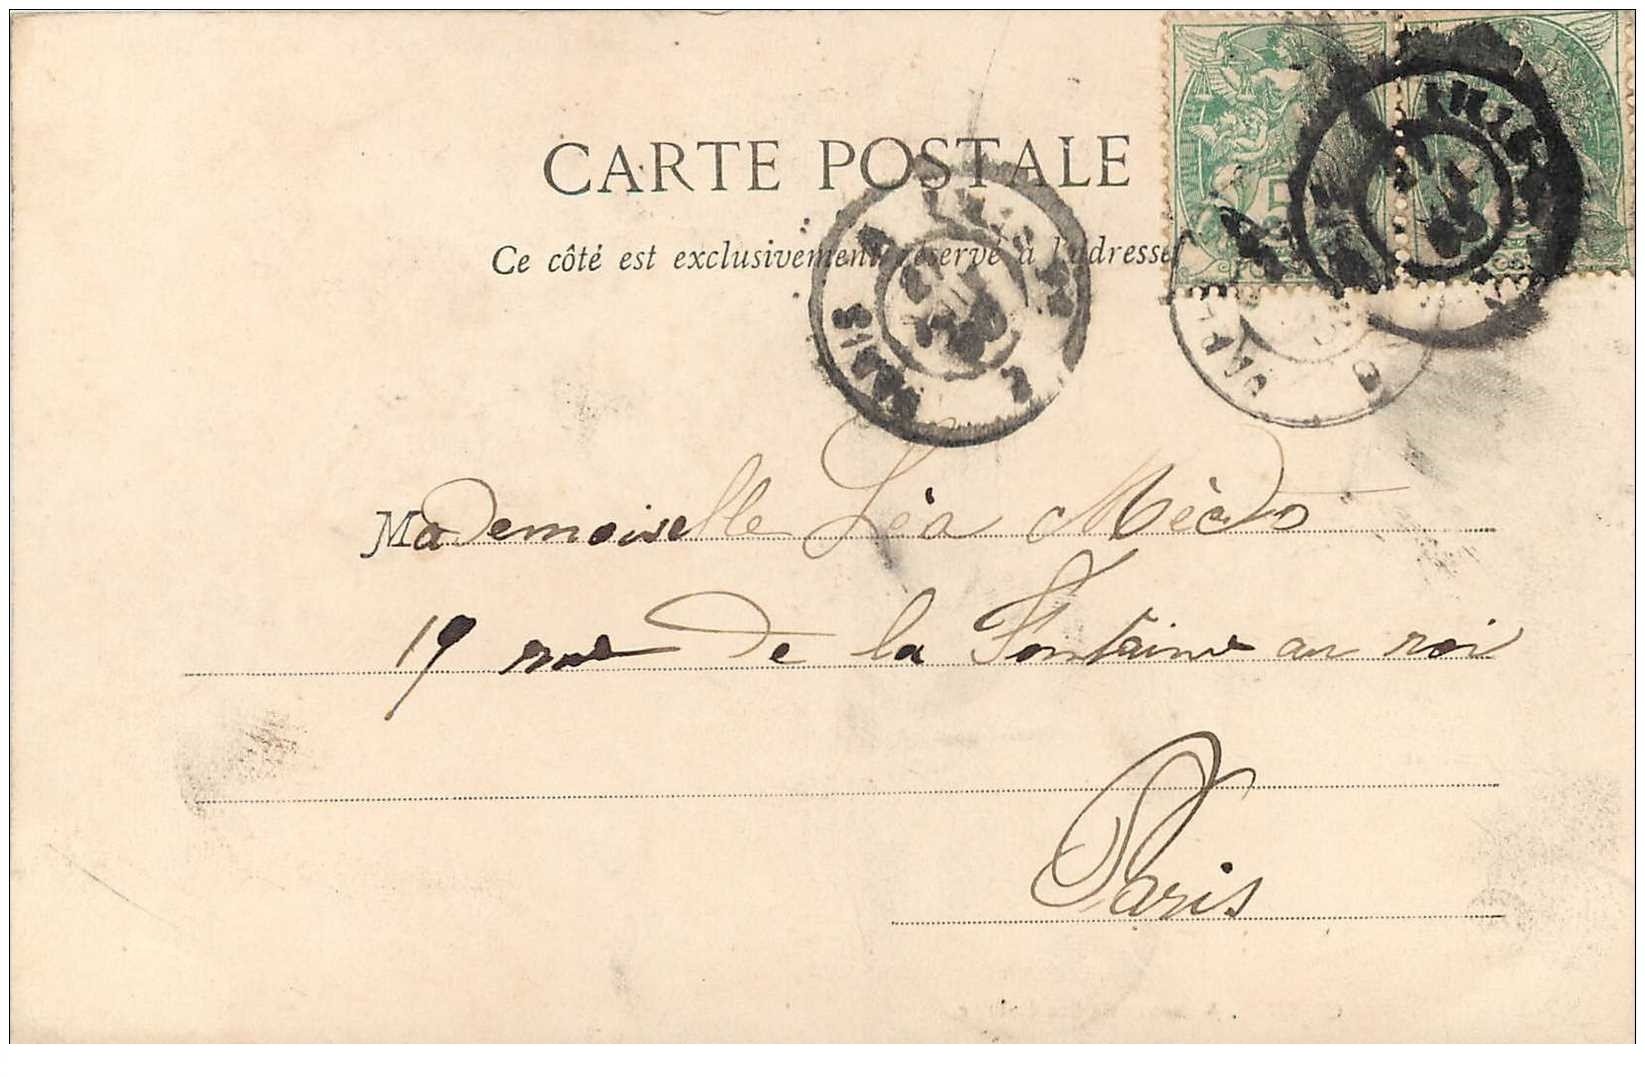 CARTE POSTALE
Ce côté est exclusivement réservé à l'adresse
Mademoiselle Léa
19 rue de la Fontaine au roi
Paris
PARIS
5